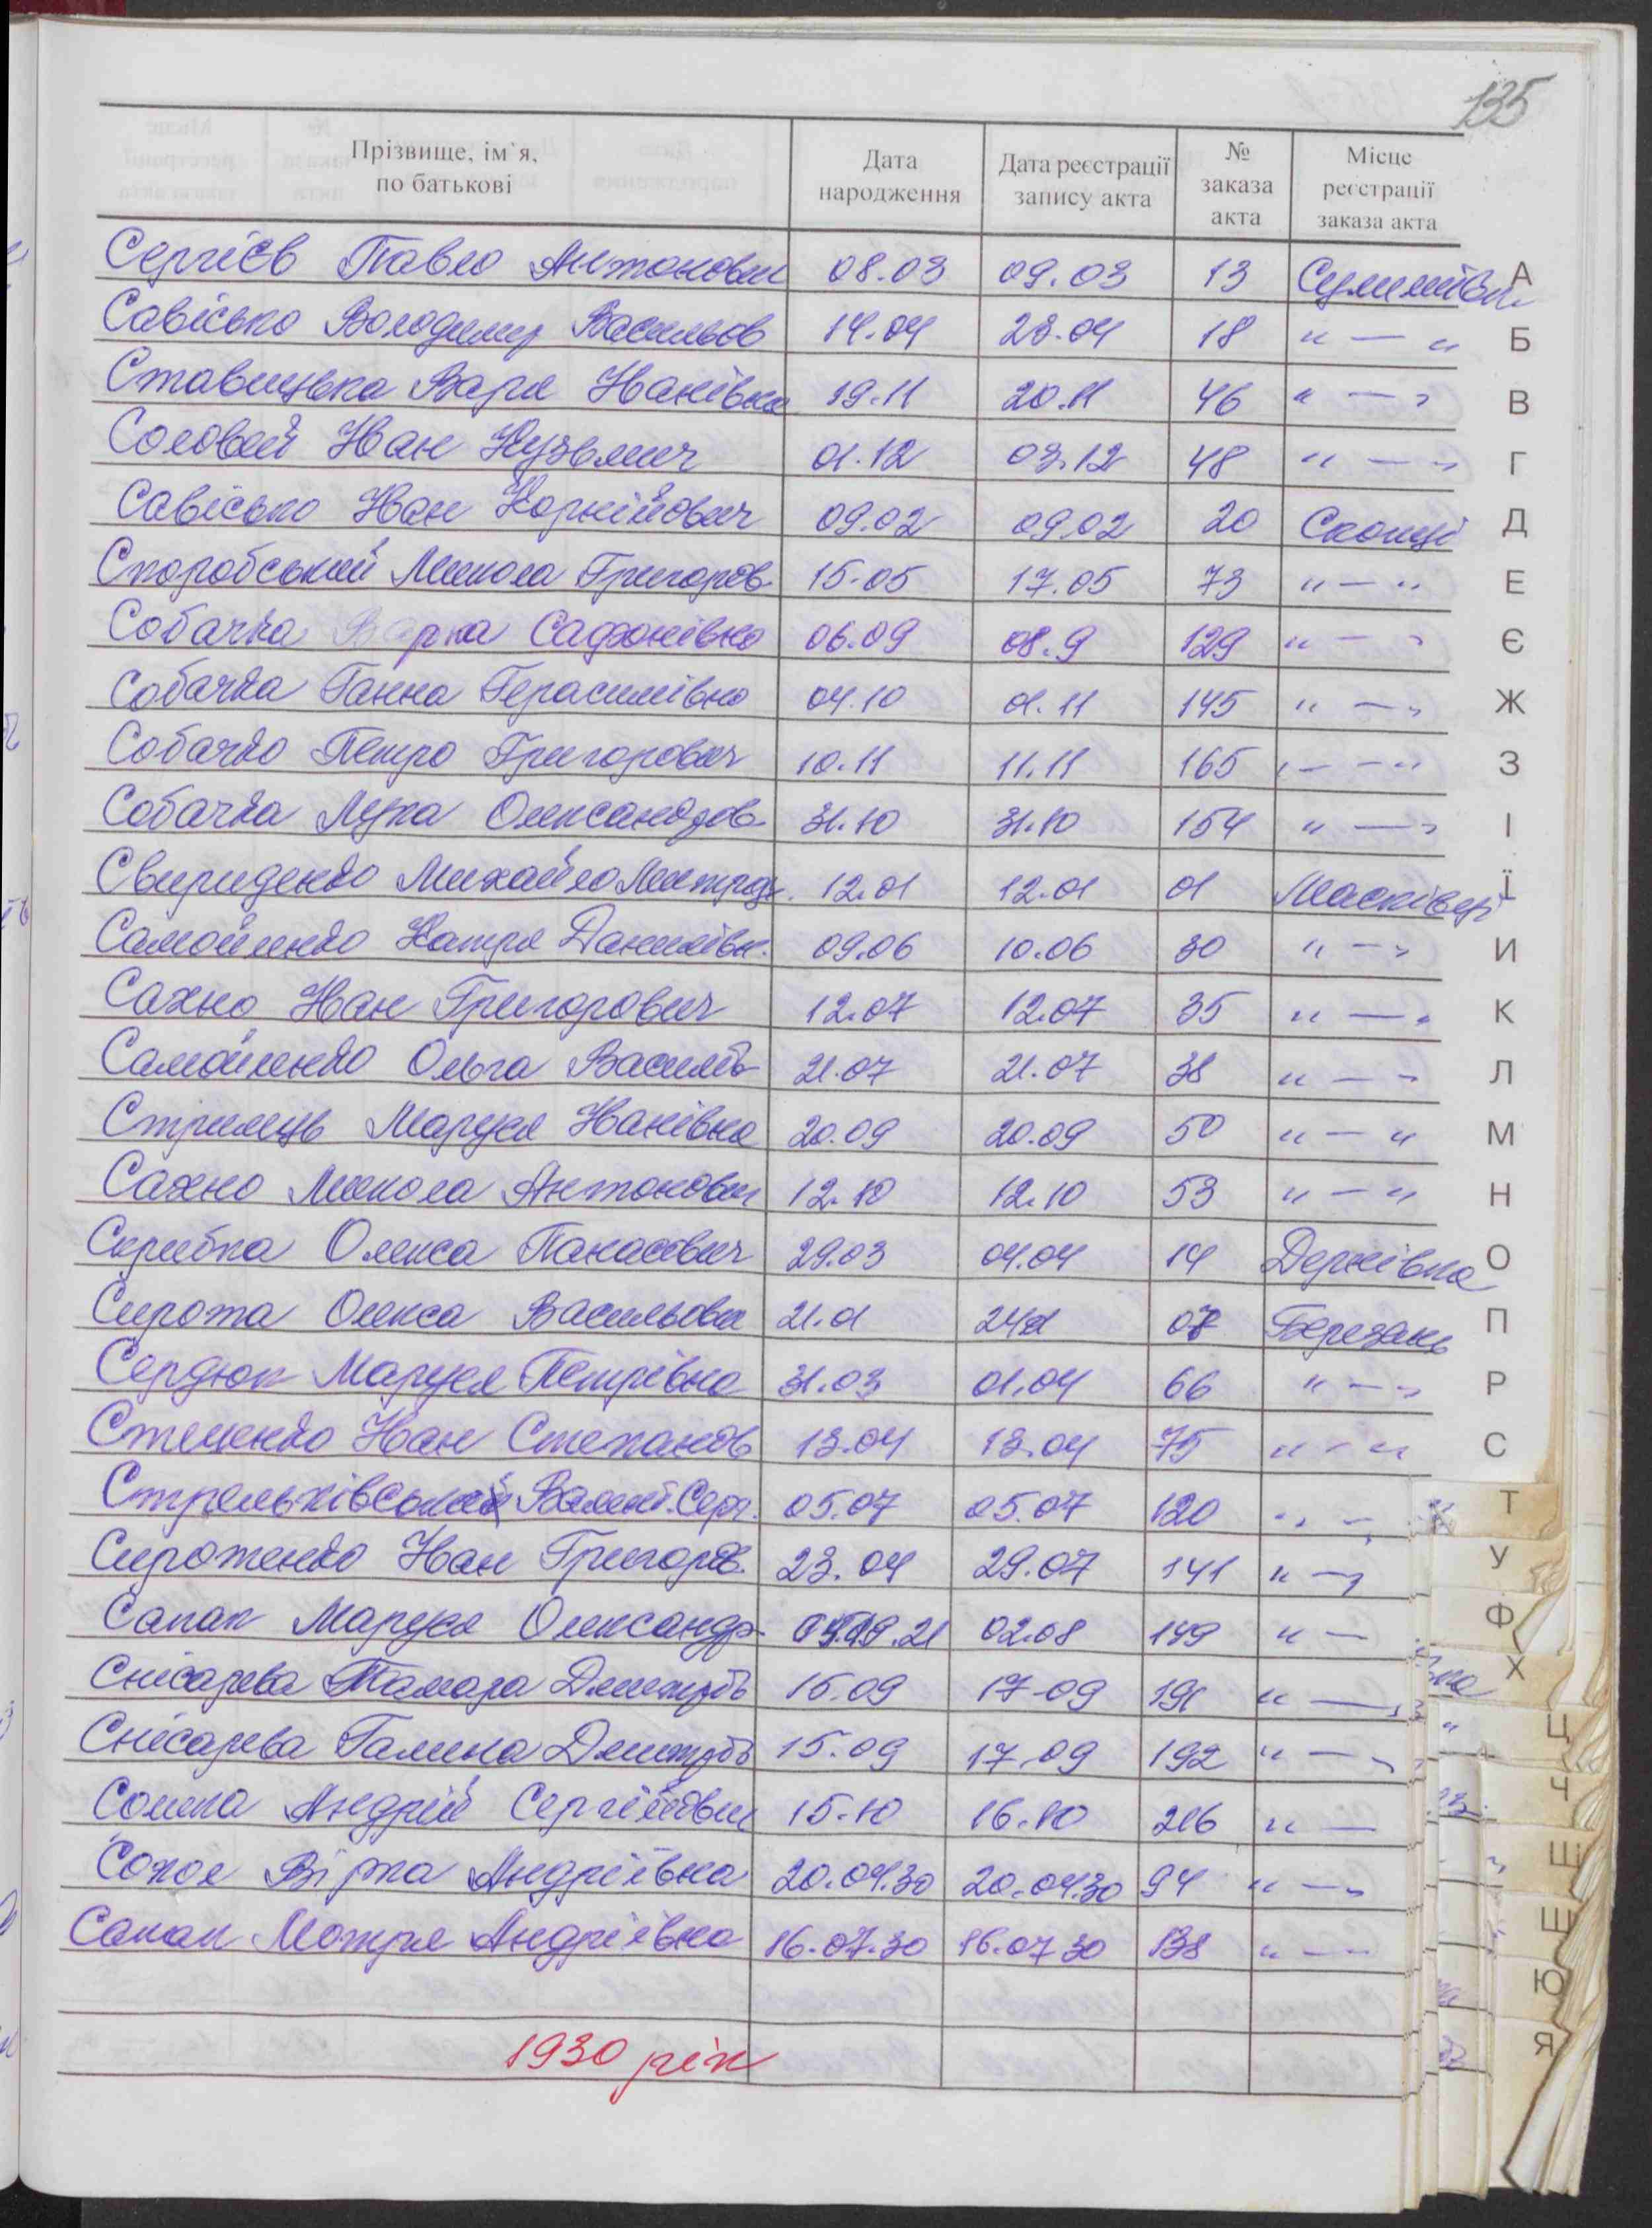 135
Прізвище, ім`я, по батькові Дата народження Дата реєстрації запису акта № заказа акта Місце реєстрації заказа акта
Сергієв Павло Антонович 08.03 09.03 13 Сулимівка
Савісько Володимир Васильов 14.04 28.04 18 " — "
Ставицька Варя Иванівна 19.11 20.11 46 " — "
Соловей Иван Кузьмич 01.12 03.12 48 " — "
Савісько Иван Корнійович 09.02 09.02 20 Скопці
Скоробський Микола Григоров. 15.05 17.05 73 " — "
Собачка Варка Сафонівна 06.09 08.9 129 " — "
Собачка Ганна Герасимівна 04.10 01.11 145 " — "
Собачко Петро Григорович 10.11 11.11 165 " — "
Собачка Лука Олександров 31.10 31.10 154 " — "
Свириденко Михайло 12.01 12.01 01 Масківці
Самойленко Катря Данилівн. 09.06 10.06 30 " — "
Сахно Иван Григорович 12.07 12.07 35 " — "
Самойленко Ольга Василів 21.07 21.07 38 " — "
Стрилець Маруся Иванівна 20.09 20.09 50 " — "
Сахно Микола Антонович 12.10 12.10 53 " — "
Скрибка Олекса Панасович 29.03 04.04 14 Дернівка
Сирота Олекса Васильович 21.01 24.01 07 Березань
Сердюк Маруся Петрівна 31.03 01.04 66 " — "
Стеценко Иван Степанов 13.04 13.04 75 " — "
Стрельківський Валент. Серг. 05.07 05.07 120 " — "
Сиротенко Иван Григоров. 23.04 29.07 141 " — "
Сапак Маруся Олександр 21 02.08 149 " —
Снісарева Тамара Дмитрів 15.09 17.09 191 " — "
Снісарева Галина Дмитрів 15.09 17.09 192 " — "
Сомка Андрій Сергійович 15.10 16.10 216 " —
Вірка Андріївна 20.04.30 20.04.30 94 " — "
Сапак Мотря Андріївна 16.07.30 16.07 30 138 " —
1930 рік
А
Б
В
Г
Д
Е
Є
Ж
З
І
Ї
И
К
Л
М
Н
О
П
Р
С
Т
У
Ф
Х
Ц
Ч
Ш
Щ
Ю
Я